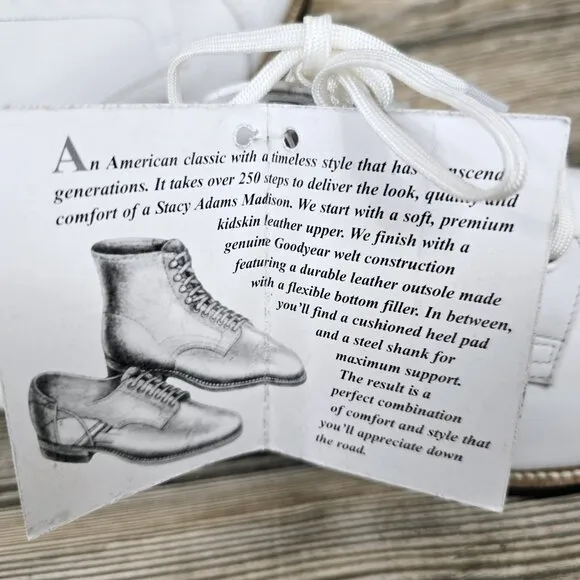 An American classic with a timeless style that has transcend
generations. It takes over 250 steps to deliver the look, quality and
comfort of a Stacy Adams Madison. We start with a soft, premium
kidskin leather upper. We finish with a
genuine Goodyear welt construction
featuring a durable leather outsole made
with a flexible bottom filler. In between,
you'll find a cushioned heel pad
and a steel shank for
maximum support.
The result is a
perfect combination
of comfort and style that
you'll appreciate down
the road.